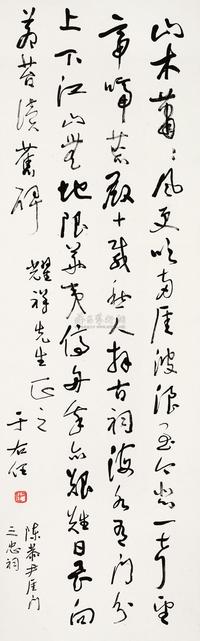 山木蕭〻風更吹兩厓波浪至今悲一聲望
帝啼荒殿十載愁人拜古祠海水有門分
上下江山無地限華夷停舟我亦艱難日畏向
蒼苔讀舊碑
耀祥先生正之
于右任
陳恭尹厓門
三忠祠